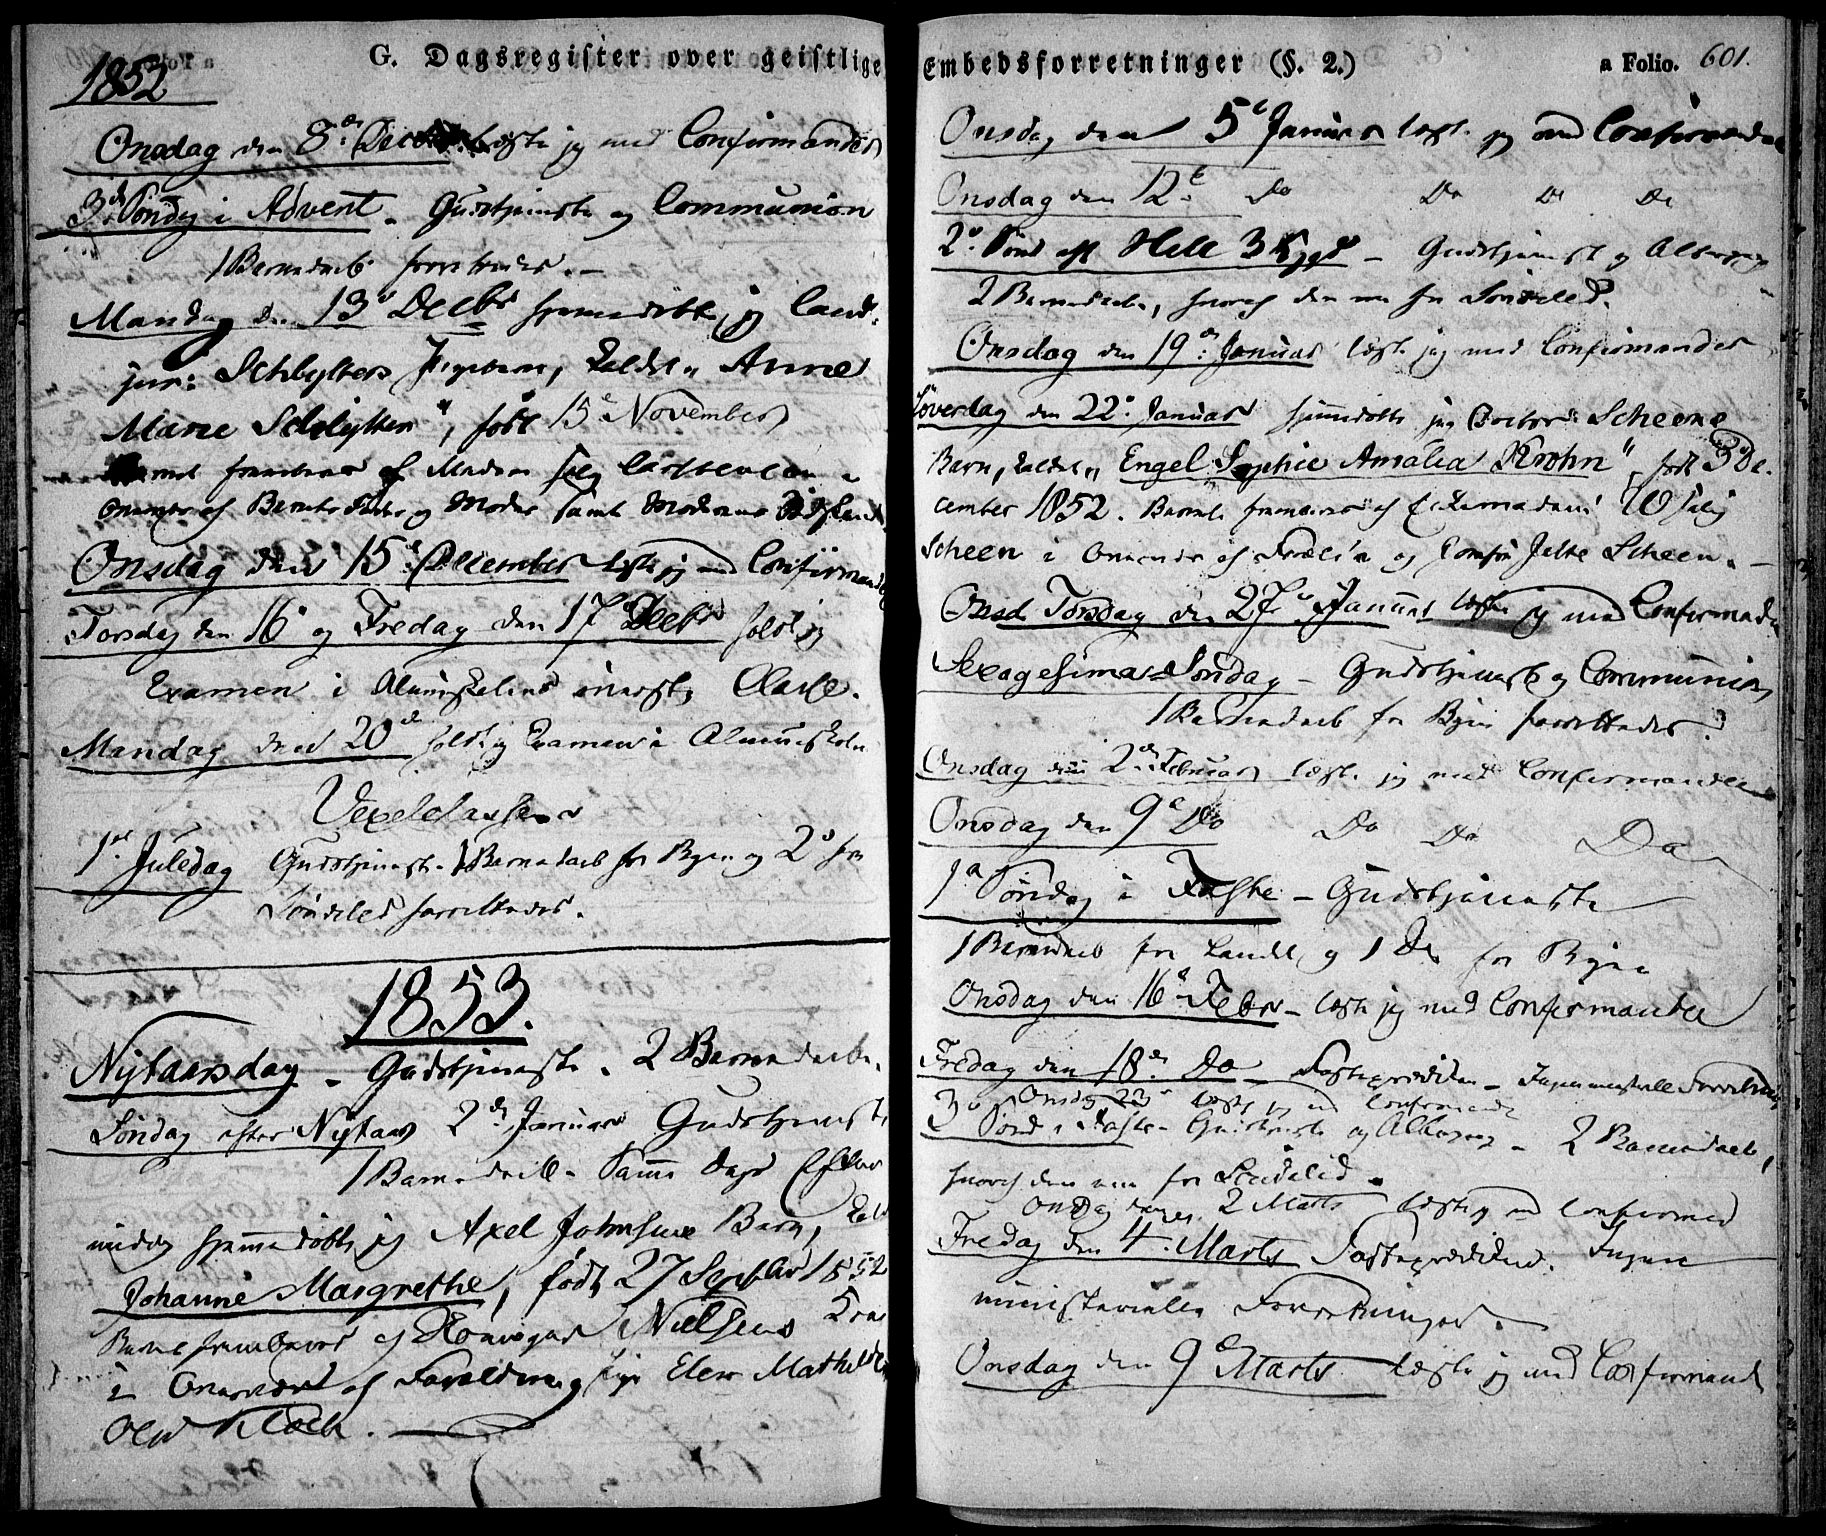 G. Dagsregister over geistlige
1852
Onsdag den 8de Decbr. læste jeg med Confirmander
3de Søndag i Advent - Gudstjeneste og Communion
1 Barnedaab forrettedes. -
Mandag den 13de Decbr hjemmedøbte jeg Cand:
jur: Schlytters Pigebarn, kaldet "Anne
Marie Schlytter", født 15de November
Barnet frembæres af Madam
Onsdag den 15de December læste jeg med Confirmander
Torsdag den 16de og Fredag den 17de Decbr holdt jeg
Examen i Almueskolens øverste Classe.
Mandag den 20de holdt jeg Examen i Almueskolens
Vexelclasse
1ste Juledag Gudstjeneste. 1 Barnedaab for Byen og 2de fra
Søndeled forrettedes.
1853.
Nytaarsdag - Gudstjeneste. 2 Barnedaabe.
Søndag efter Nytaar 2den Januar Gudstjeneste
1 Barnedaab - Samme Dags Efter
middag hjemmedøbte jeg Axel Johnsens Barn, kaldt
Johanne Margrethe, født 27 Septbr 1852
Barnet frembæres af Nielsens Kone
i Overvær af Forældrene og Pige Elen Mathilde
Olsd Klock.
Embedsforretninger (§. 2.)
a Folio. 601.
Onsdag den 5te Januar læste jeg med Confirmander
Onsdag den 12te Do Do Do Do
2den Sønd eft Hell 3 Kgr - Gudstjenest og Altergang
2 Barnedaabe, hvoraf den ene fra Søndeled.
Onsdag den 19de Januar læste jeg med Confirmander
Löverdag den 22de Januar hjemmedøbte jeg Doctor Scheens
Barn, kaldet "Engel Sophie Amalia Krohn", født 3 De-
cember 1852. Barnet frembæres af
Scheen i Overvær af Foræld. og Jomfru Jelte Scheen. -
Onsd Torsdag den 27de Januar læste jeg med Confirmander
Sexagesima Søndag - Gudstjenest og Communion
1 Barnedaab for Byen forrettedes.
Onsdag den 2den Februar læste jeg med Confirmanderne
Onsdag den 9de Do Do Do Do
1ste Søndag i Faste - Gudstjeneste
1 Barnedaab for Landet og 1 Do for Byen
Onsdag den 16de Febr - læste jeg med Confirmander
Fredag den 18de Do - Fasteprædiken - Ingen ministerielle Forretning
Onsdag 23de læste jeg med Confirmande
3de Sønd i Faste - Gudstjeneste og Altergang - 2 Barnedaabe,
hvoraf den ene fra Söndeled.
Onsdag den 2 Marts læste jeg med Confirmand
Fredag den 4. Marts Fasteprædiken. Ingen
ministerielle Forretninger.
Onsdag den 9de Marts læste jeg med Confirmand